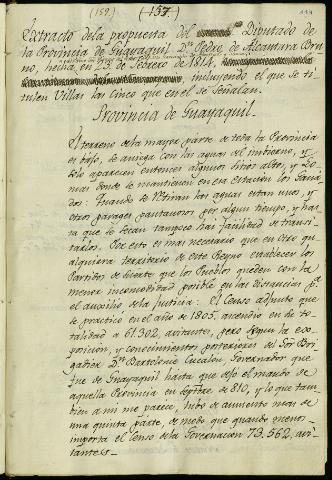 (152) (157) 144
Extracto dela propuesta del Diputado de
la Provincia de Guayaquil Dn. Pedro de Alcantara Bru
no, hecha en 23 de Febrero de 1814,
incluiendo el que se ti
tulen Villas las Cinco que en el se Señalan.
Provincia de Guayaquil.
El terreno de la mayor parte de toda la Provincia
es bajo, se aniega con las aguas del imbierno, y
solo aparecen entonces algunos Sitios altos, y Lo
mas donde se mantienen en esa estacion los Gana
dos: Quando se retiran las aguas estan unos, y
otros parages pantanosos por algun tiempo, y has
ta que se secan tampoco hai facilidad de transi
tarlos. Por esto es mas necesario que en otro qu
alquiera territorio de este Reyno establecer los
Partidos de suerte que los Pueblos queden con la
menor incomodidad posible en las distancias pa.
el auxilio de la Justicia: El Censo adjunto que
se practicó en el año de 1805, ascendio en su to
talidad a 61.302, avitantes, pero segun la ex
posicion, y conocimientos posteriores del Sor Bri
gadier Dn. Bartolome Cucalon Governador que
fue de Guayaquil hasta que dejó el mando de
aquella Provincia en Septre. de 810, y lo que tam
bien a mi me parece, tubo de aumento mas de
una quinta parte, de modo que quando menos
importa el Censo de la Governacion 73.562, avi
tantes